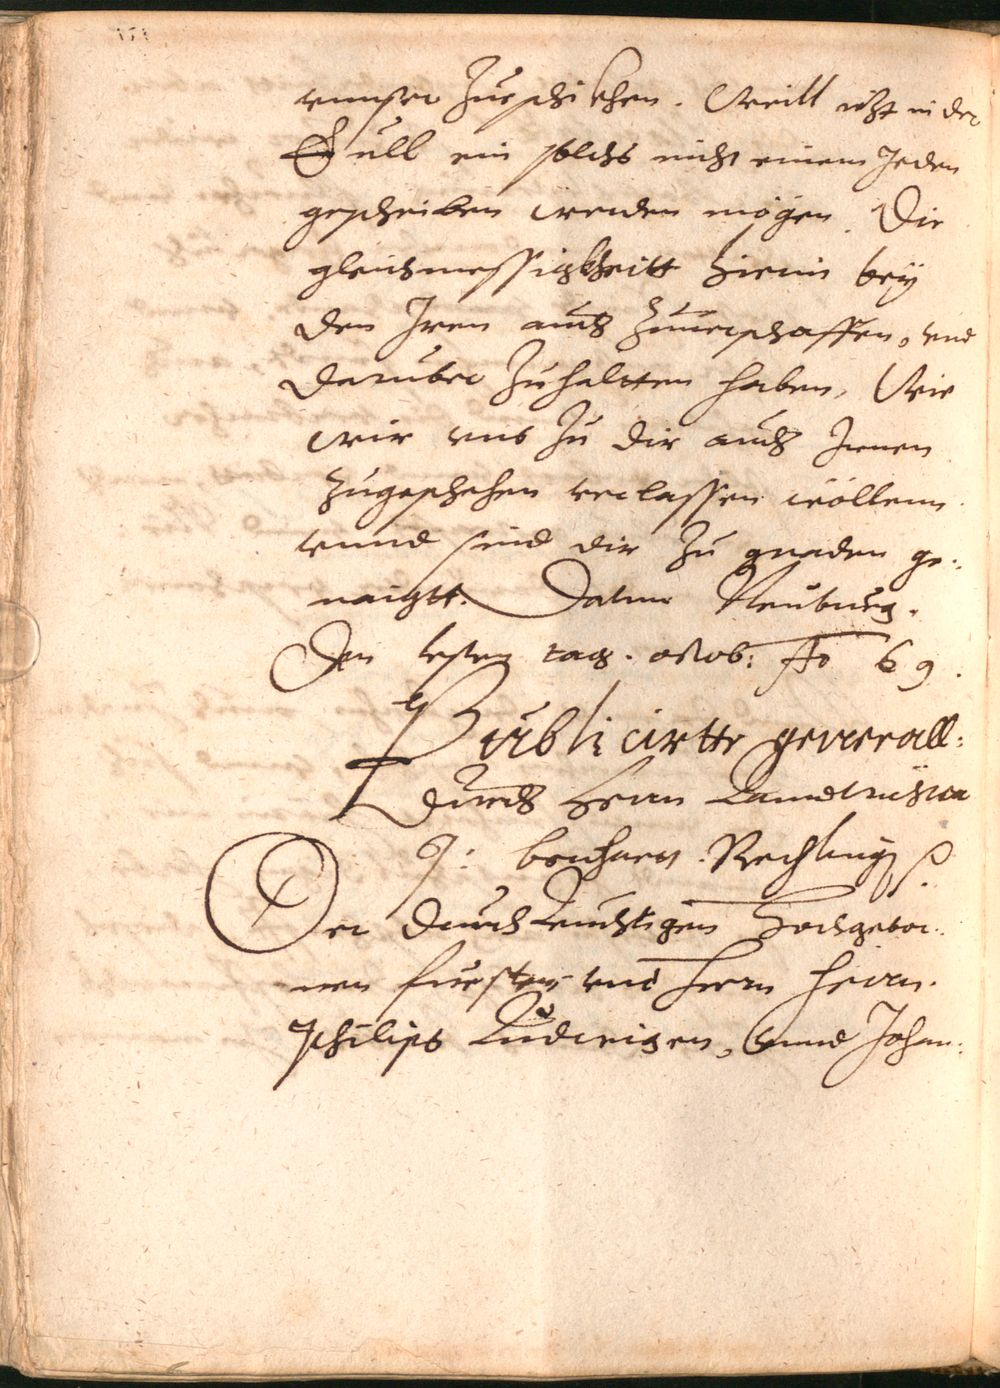 unnser Zueschikhen. Weill nicht in der
Eyll ein solchs nicht einem Jeden
geschriben werden mögen. Die
gleichmessigkheitt hierin bey
den Iren auch Zuuerschaffen, und
daruber Zuhaltten haben, Wie
wir uns Zu dir auch Jnen
Zugeschehen verlassen wöllenn
unnd sind dir Zu gnaden ge:
naigtt. Datum Neuburg.
Den letsten tag. octob: Ao 69.
Publicirtte generall:
durch herrn Lanndtrichter
J: Rechling
Der durchleuchtigen Hochgebor:
nen fursten und herrn herrn.
Philips Ludwigen, unnd Johan: